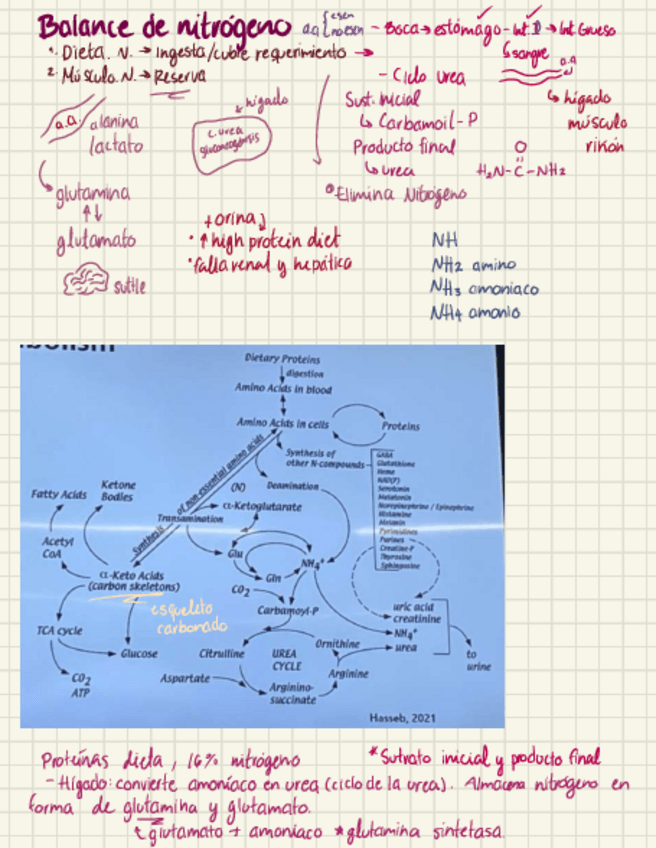 Balance de nitrógeno a.a { esen noesen - Boca → estómago - int. D → Int. Grueso
1. Dieta. N. → Ingesta/cubre requerimiento →
↳ sangre
2. Músculo. N. → Reserva
a.a
- Ciclo urea
↳ hígado
músculo
riñón
Sust. inicial
↳ Carbamoil-P
Producto final
↳ urea
° Elimina Nitrógeno
O
H₂N-C-NH₂
hígado
c. urea
gluconeogénesis
a.a. alanina
lactato
glutamina
↑↓
glutamato
suttle
+orina↓
• ↑ high protein diet
• falla renal y hepática
NH
NH2 amino
NH3 amoniaco
NH4 amonio
Dietary Proteins
digestion
Amino Acids in blood
Amino Acids in cells
Proteins
Synthesis of non-essential amino acids
Synthesis of
other N-compounds
GABA
Glutathione
Heme
NAD(P)
Serotonin
Melatonin
Norepinephrine / Epinephrine
Histamine
Melanin
Pyrimidines
Purines
Creatine-P
Thyroxine
Sphingosine
(N)
Deamination
Transamination
α-Ketoglutarate
Fatty Acids
Ketone
Bodies
Acetyl
CoA
Glu
Gln
NH₄⁺
α-Keto Acids
(carbon skeletons)
esqueleto
carbonado
CO₂
Carbamoyl-P
uric acid
creatinine
NH₄⁺
urea
to
urine
TCA cycle
Glucose
CO₂
ATP
Citrulline
UREA
CYCLE
Ornithine
Arginine
Aspartate
Arginino-
succinate
Hasseb, 2021
Proteínas dieta, 16% nitrógeno
*Sutrato inicial y producto final
- Hígado: convierte amoníaco en urea (ciclo de la urea). Almacena nitrógeno en
forma de glutamina y glutamato.
↳ glutamato + amoniaco * glutamina sintetasa